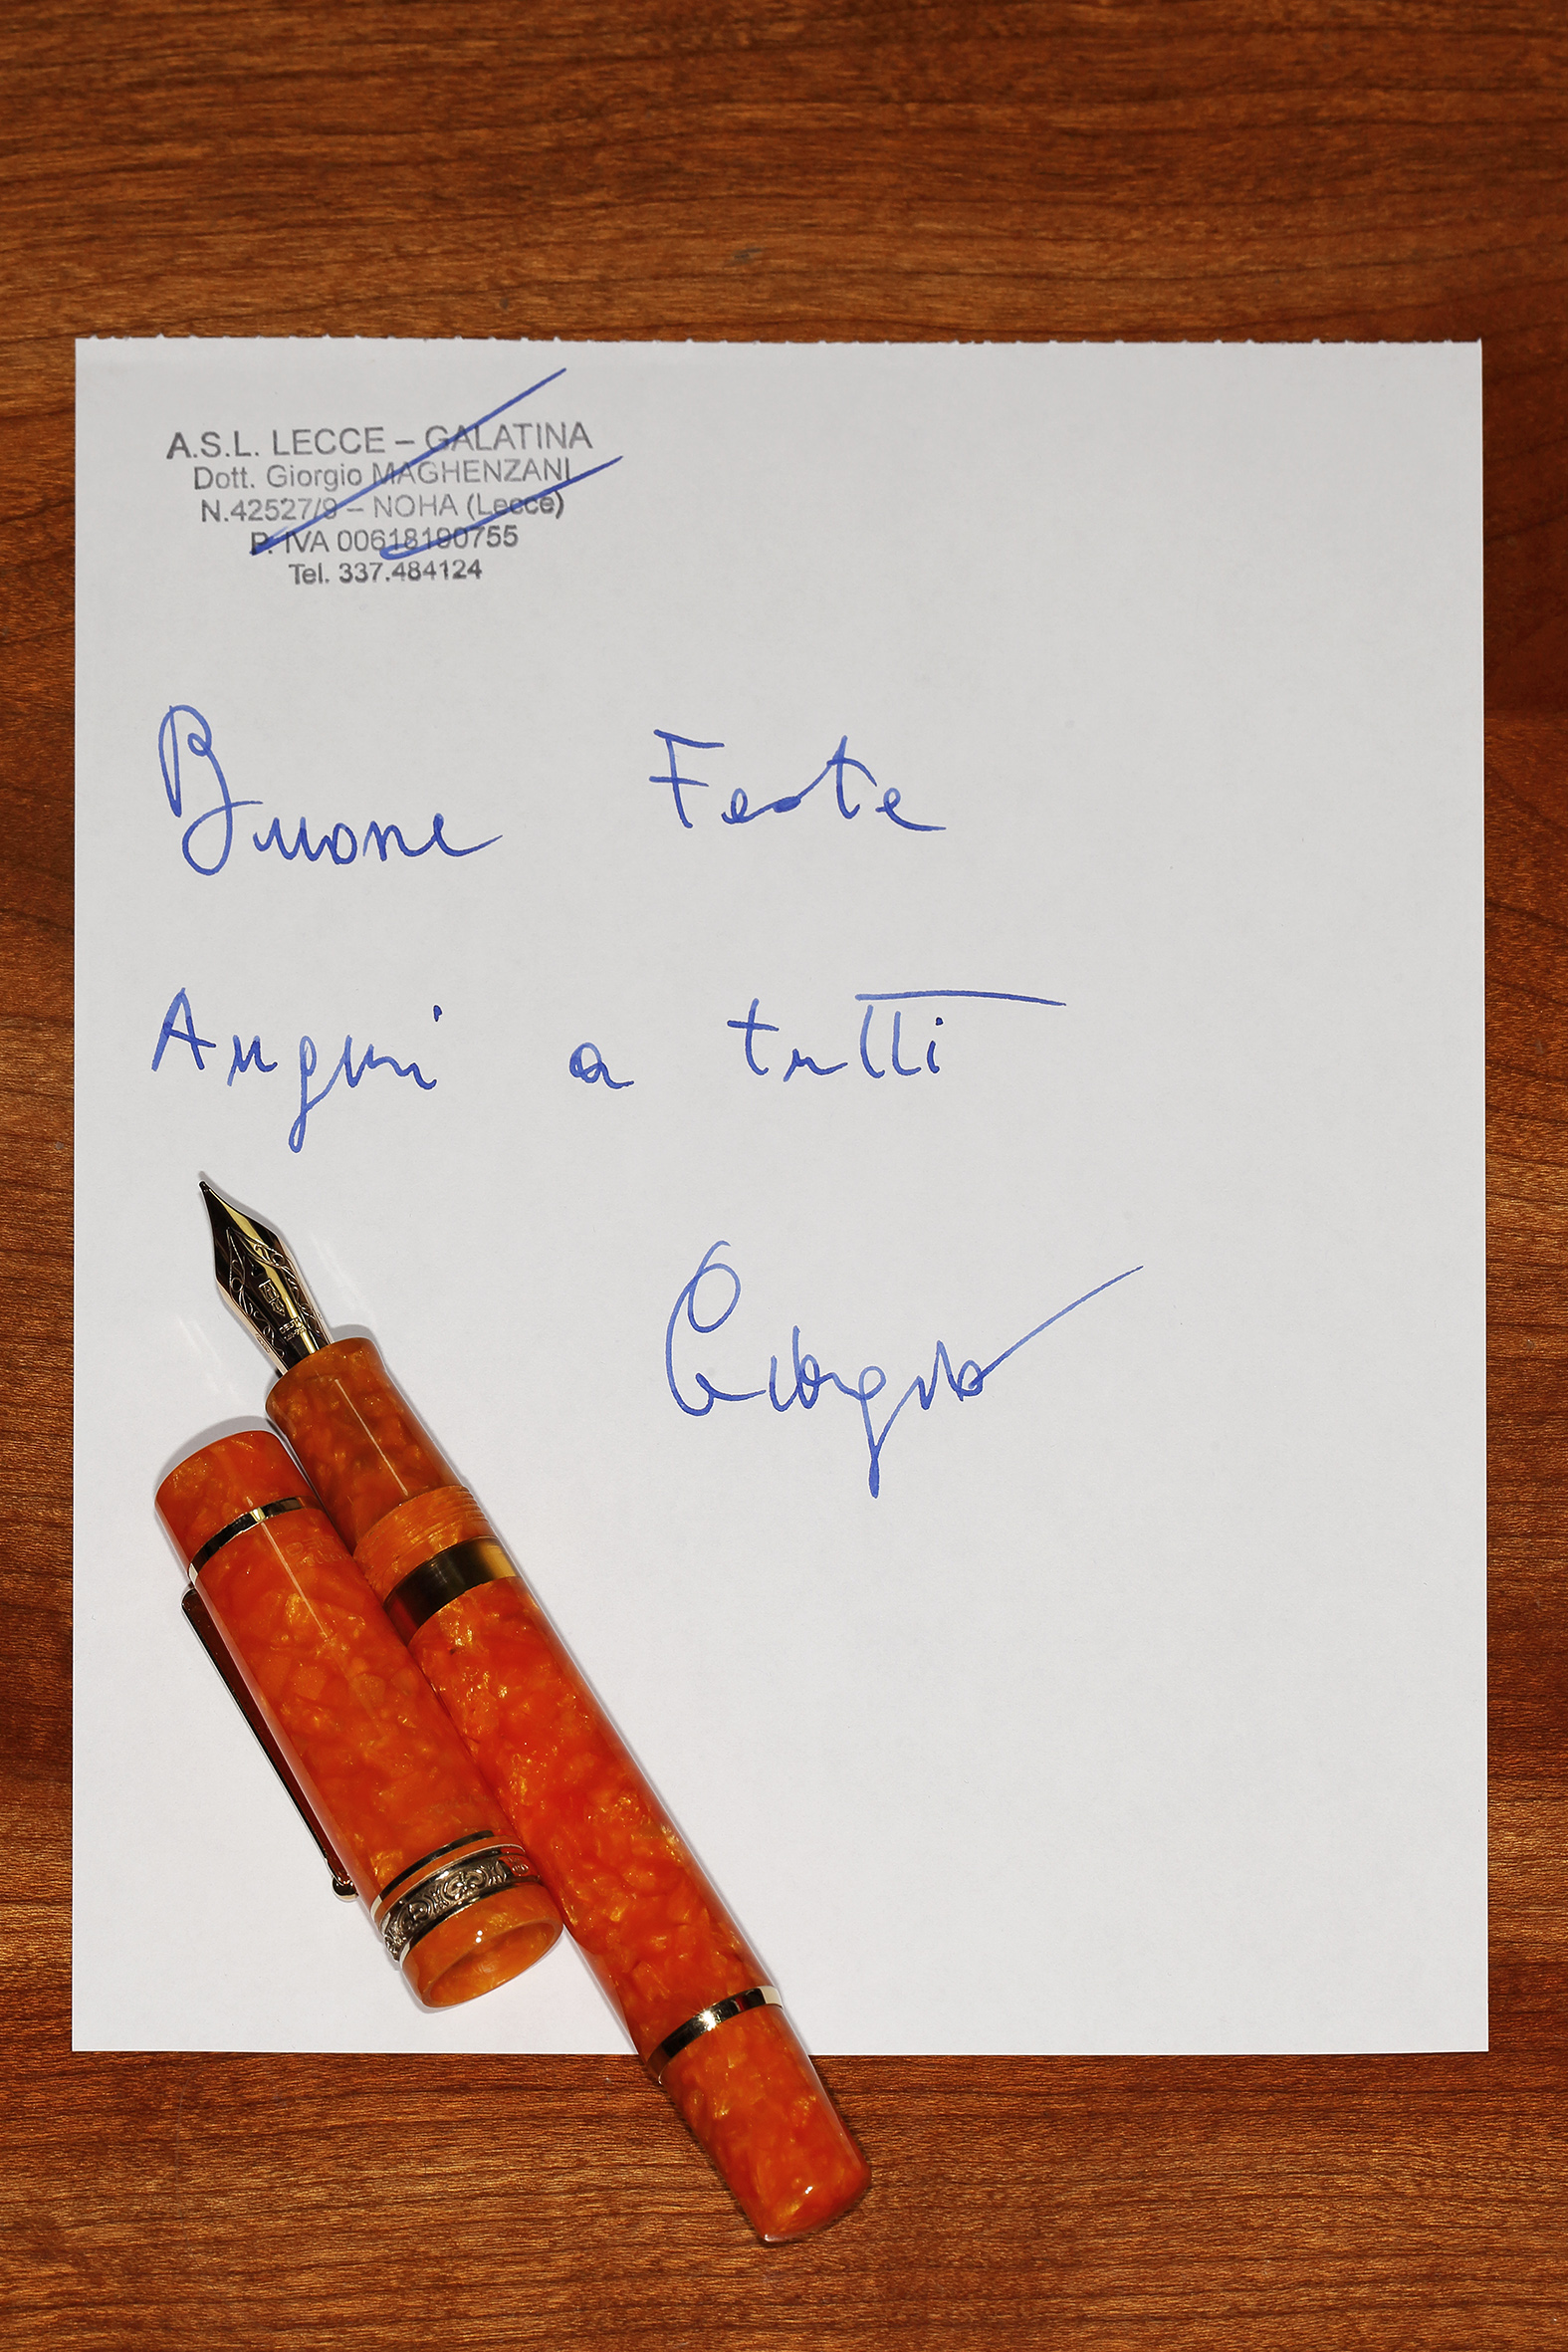 A.S.L. LECCE – GALATINA
Dott. Giorgio MAGHENZANI
N.42527/9 – NOHA (Lecce)
P. IVA 00618190755
Tel. 337.484124
Buone Feste
Auguri a tutti
Giorgio